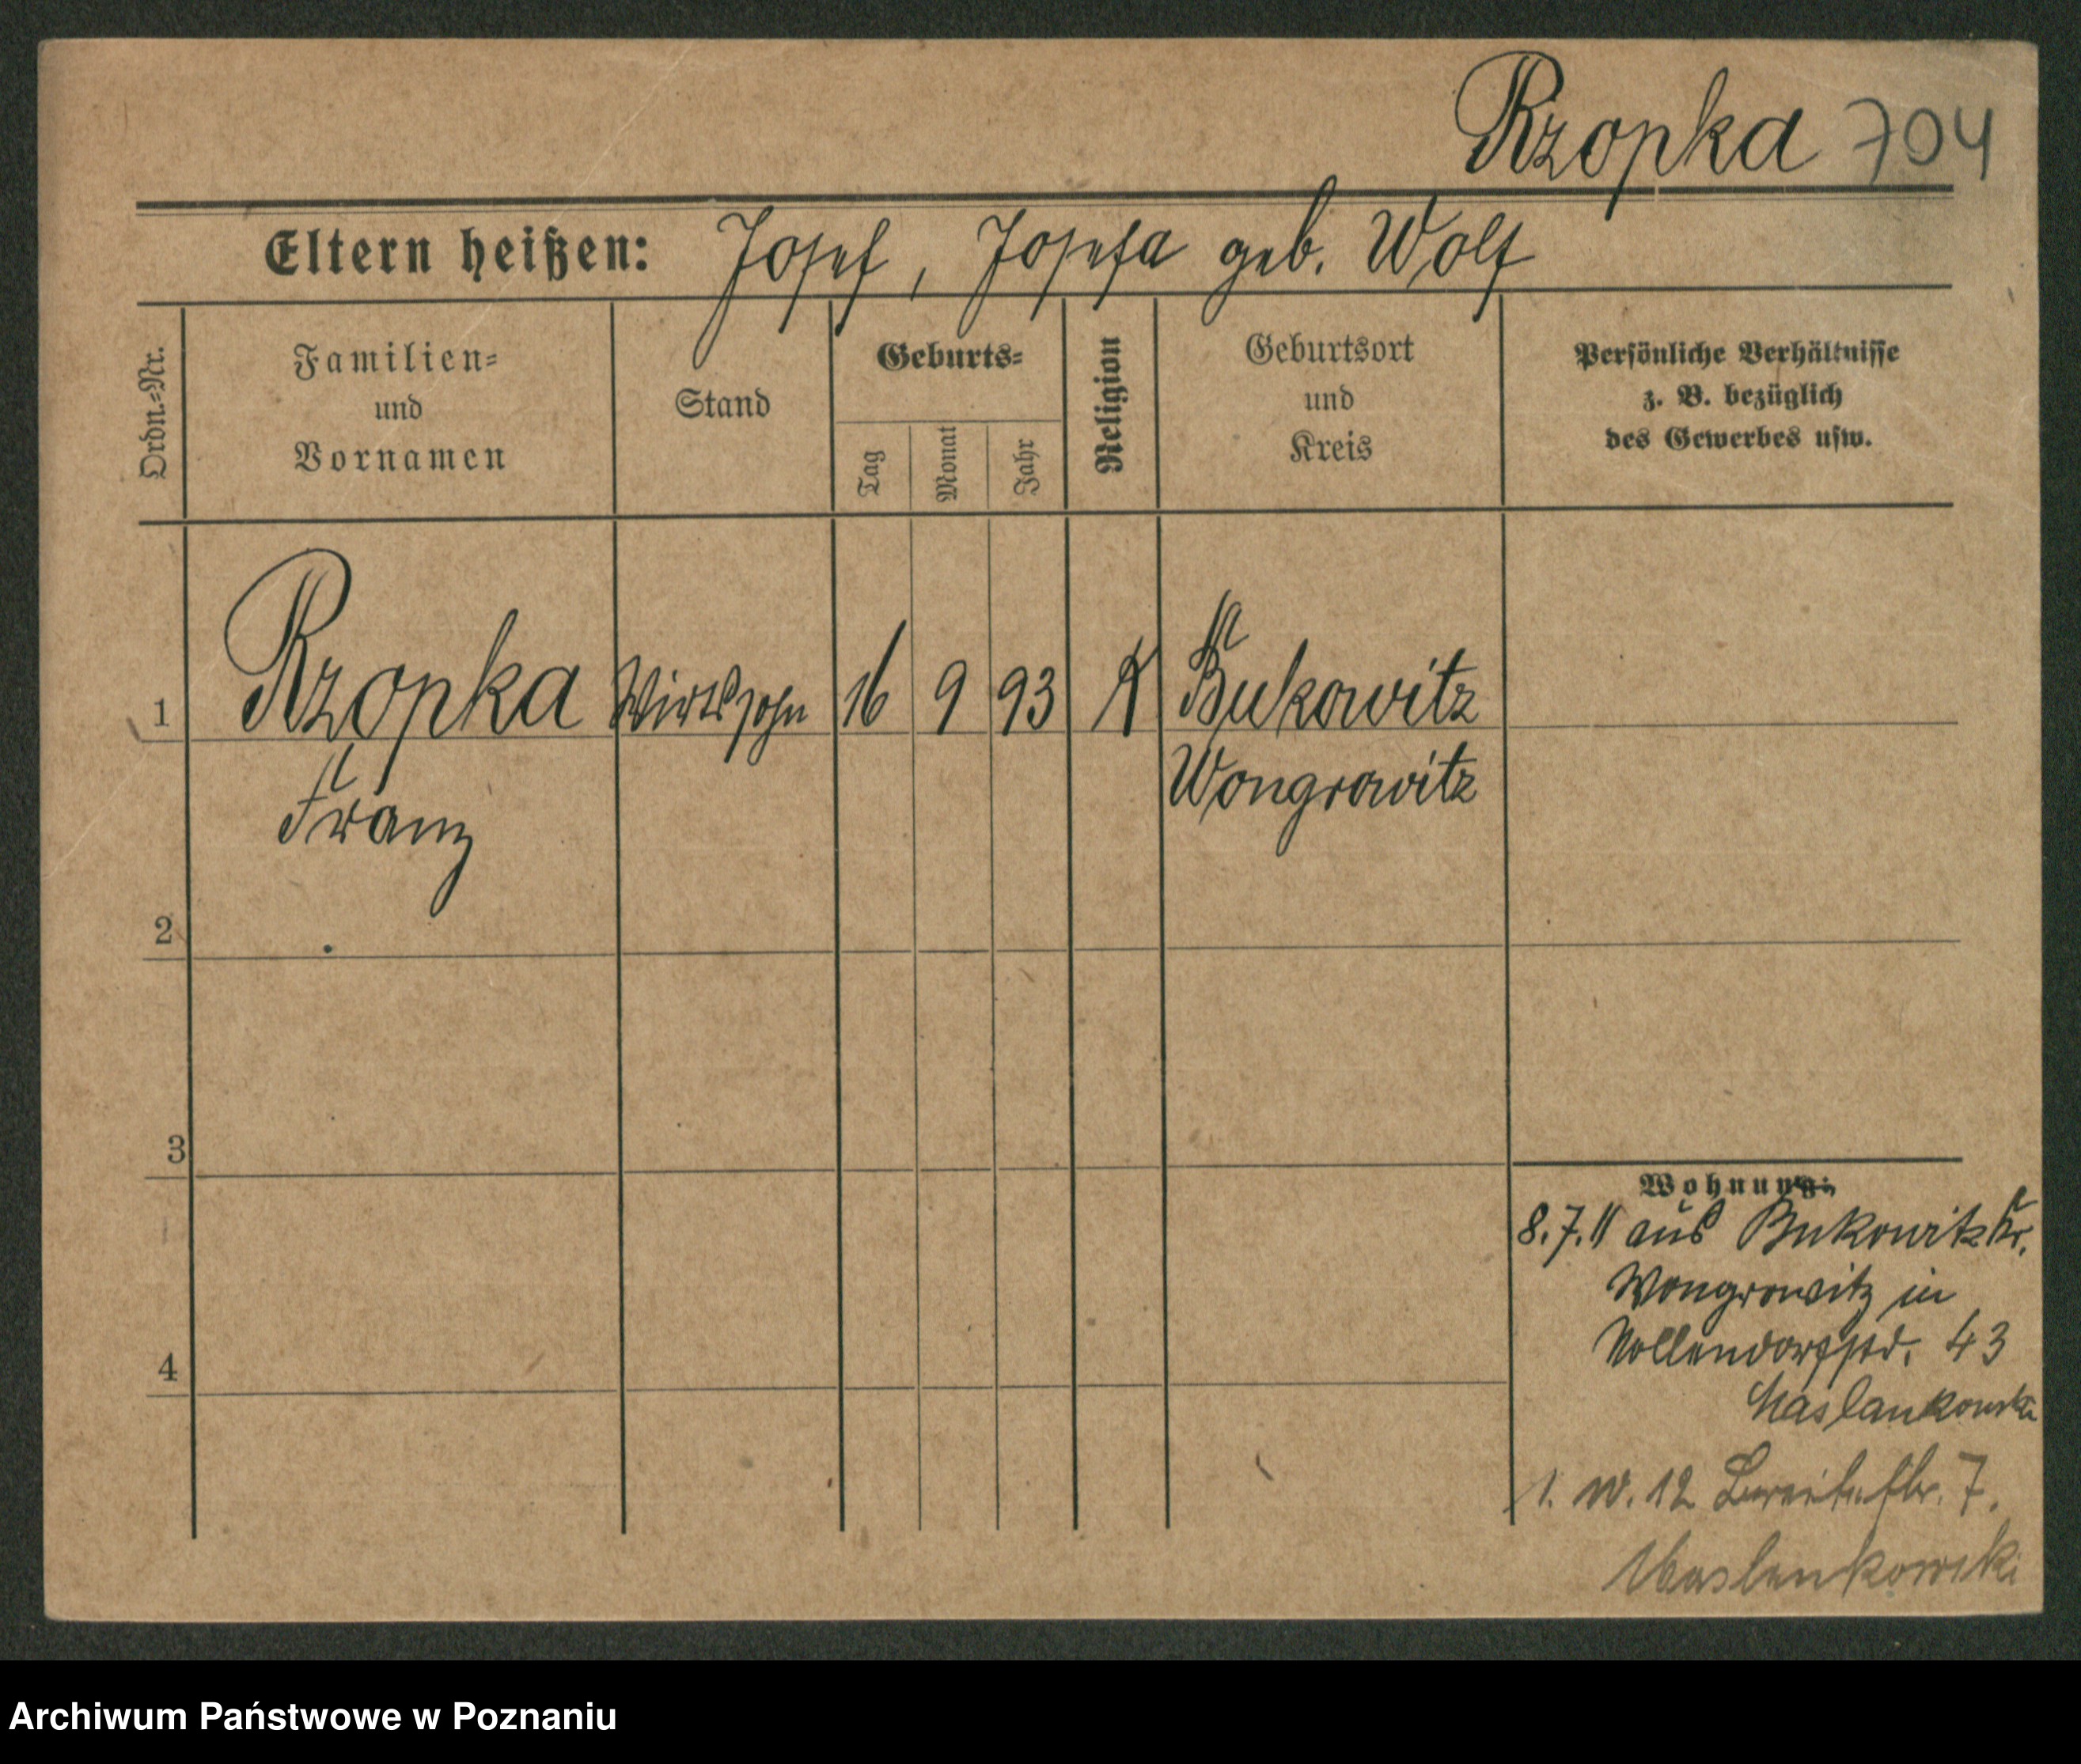 Rzopka 704
Eltern heißen: Josef, Josefa geb. Wolf
Ordn.=Nr.
Familien=
und
Vornamen
Stand
Geburts=
Tag
Monat
Jahr
Religion
Geburtsort
und
Kreis
Persönliche Verhältnisse
z. B. bezüglich
des Gewerbes usw.
1 Rzopka Wirtssohn 16 9 93 K Bukowitz
Franz Wongrowitz
2
3
Wohnung:
8.7.11 aus Bukowitz Kr.
Wongrowitz in
Nollendorfstr. 43
4
Maslankowski
1. IV. 12 7.
Maslankowski
Archiwum Państwowe w Poznaniu